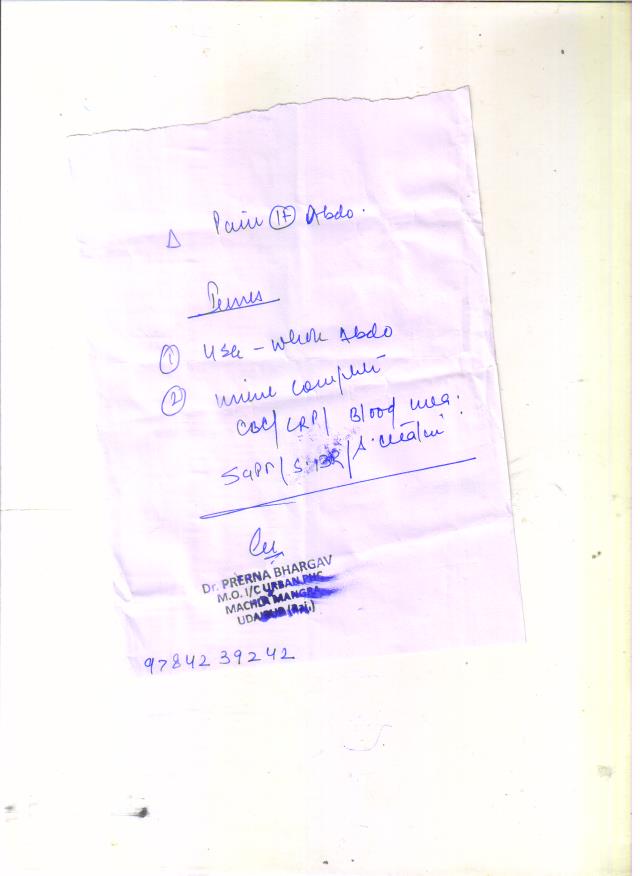 Δ Pain (IF) Abdo.
① USG - Whole Abdo
② Urine Complete
CBC/CRP/ Blood Urea.
SGPT/S. /S. Creatini
Dr. PRERNA BHARGAV
M.O. I/C URBAN PHC
MACHLA MANGRA
UDAIPUR (Raj.)
97842 39242